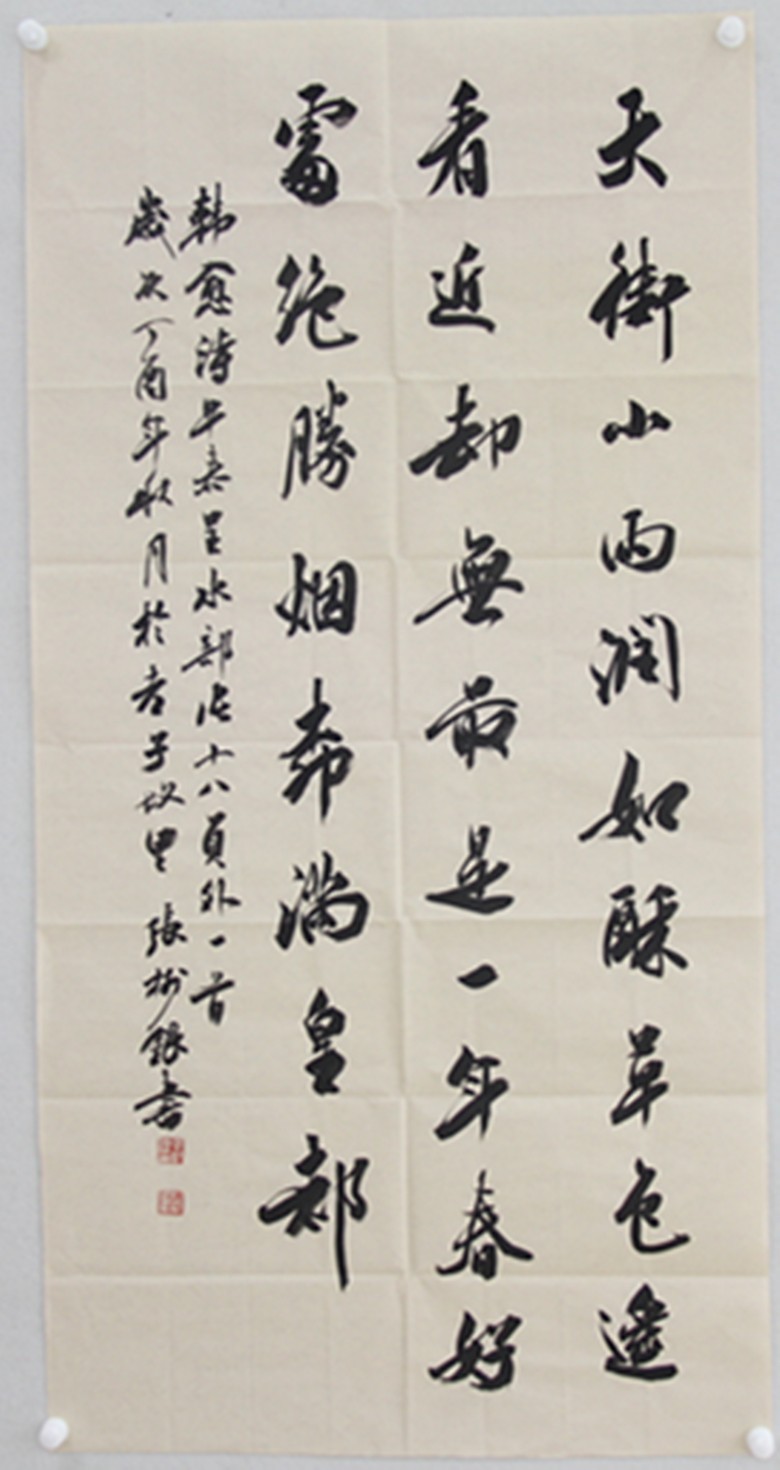 天街小雨潤如酥草色遙
看近却無最是一年春好
處絶勝烟柳滿皇都
韩愈詩早春呈水部张十八員外一首
歲次丁酉年秋月於老子故里 張树銀書